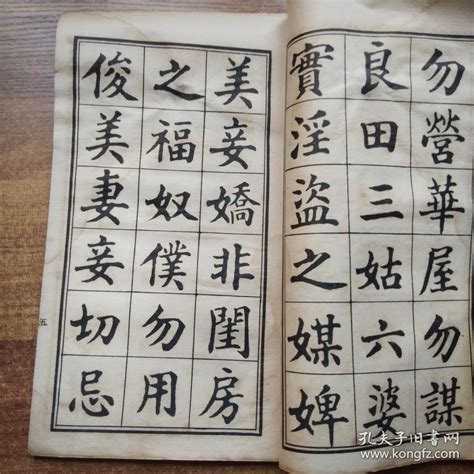 勿營華屋勿謀
良田三姑六婆
實淫盜之媒婢
美妾嬌非閨房
之福奴僕勿用
俊美妻妾切忌
五
孔夫子旧书网
www.kongfz.com